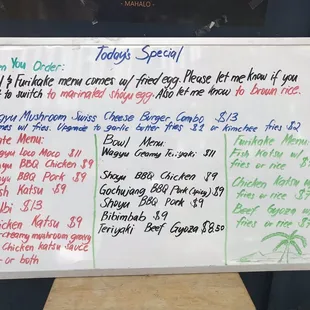 - MAHALO -
Today's Special
n You Order:
& Furikake menu comes w/ fried egg. Please let me know if you
to switch to marinated shoyu egg. Also let me know to brown rice.
agyu Mushroom Swiss Cheese Burger Combo $13
mes w/ fries. Upgrade to garlic butter fries $1 or kimchee fries $2
ate Menu:
agyu Loco Moco $11
oyu BBQ Chicken $9
oyu BBQ Pork $9
sh Katsu $9
lbi $13
icken Katsu $9
creamy mushroom gravy
Chicken Katsu sauce
- or both
Bowl Menu:
Wagyu Creamy Teriyaki $11
Shoyu BBQ Chicken $9
Gochujang BBQ Pork (spicy) $9
Shoyu BBQ Pork $9
Bibimbab $9
Teriyaki Beef Gyoza $8.50
Furikake Menu
Fish Katsu w/
fries or rice
Chicken Katsu
fries or rice
Beef Gyoza w/
fries or rice